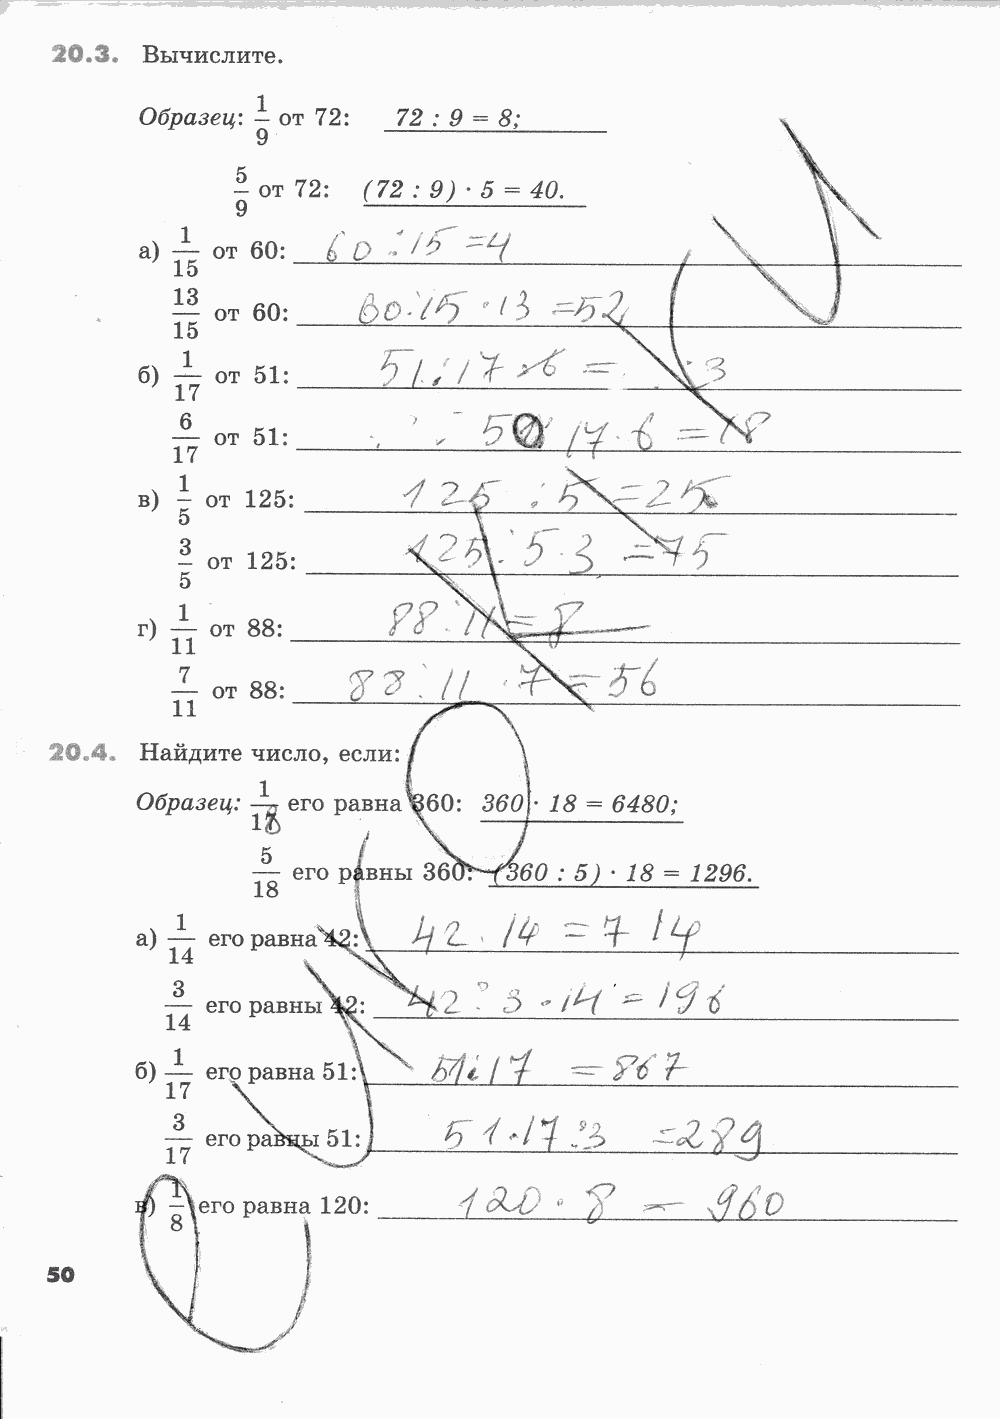 20.3. Вычислите.
Образец: 1/9 от 72: 72 : 9 = 8;
5/9 от 72: (72 : 9) · 5 = 40.
а) 1/15 от 60: 60:15=4
13/15 от 60: 60:15·13=52
б) 1/17 от 51: 51:17 = 3
6/17 от 51: 17·6=18
в) 1/5 от 125: 125:5=25
3/5 от 125: 125:5·3=75
г) 1/11 от 88: 88:11=8
7/11 от 88: 88:11·7=56
20.4. Найдите число, если:
Образец: 1/18 его равна 360: 360 · 18 = 6480;
5/18 его равны 360: (360 : 5) · 18 = 1296.
а) 1/14 его равна 42: 42·14=714
3/14 его равны 42: 42:3·14=196
б) 1/17 его равна 51: 51:17=867
3/17 его равны 51: 51·17:3=289
в) 1/8 его равна 120: 120·8=960
50